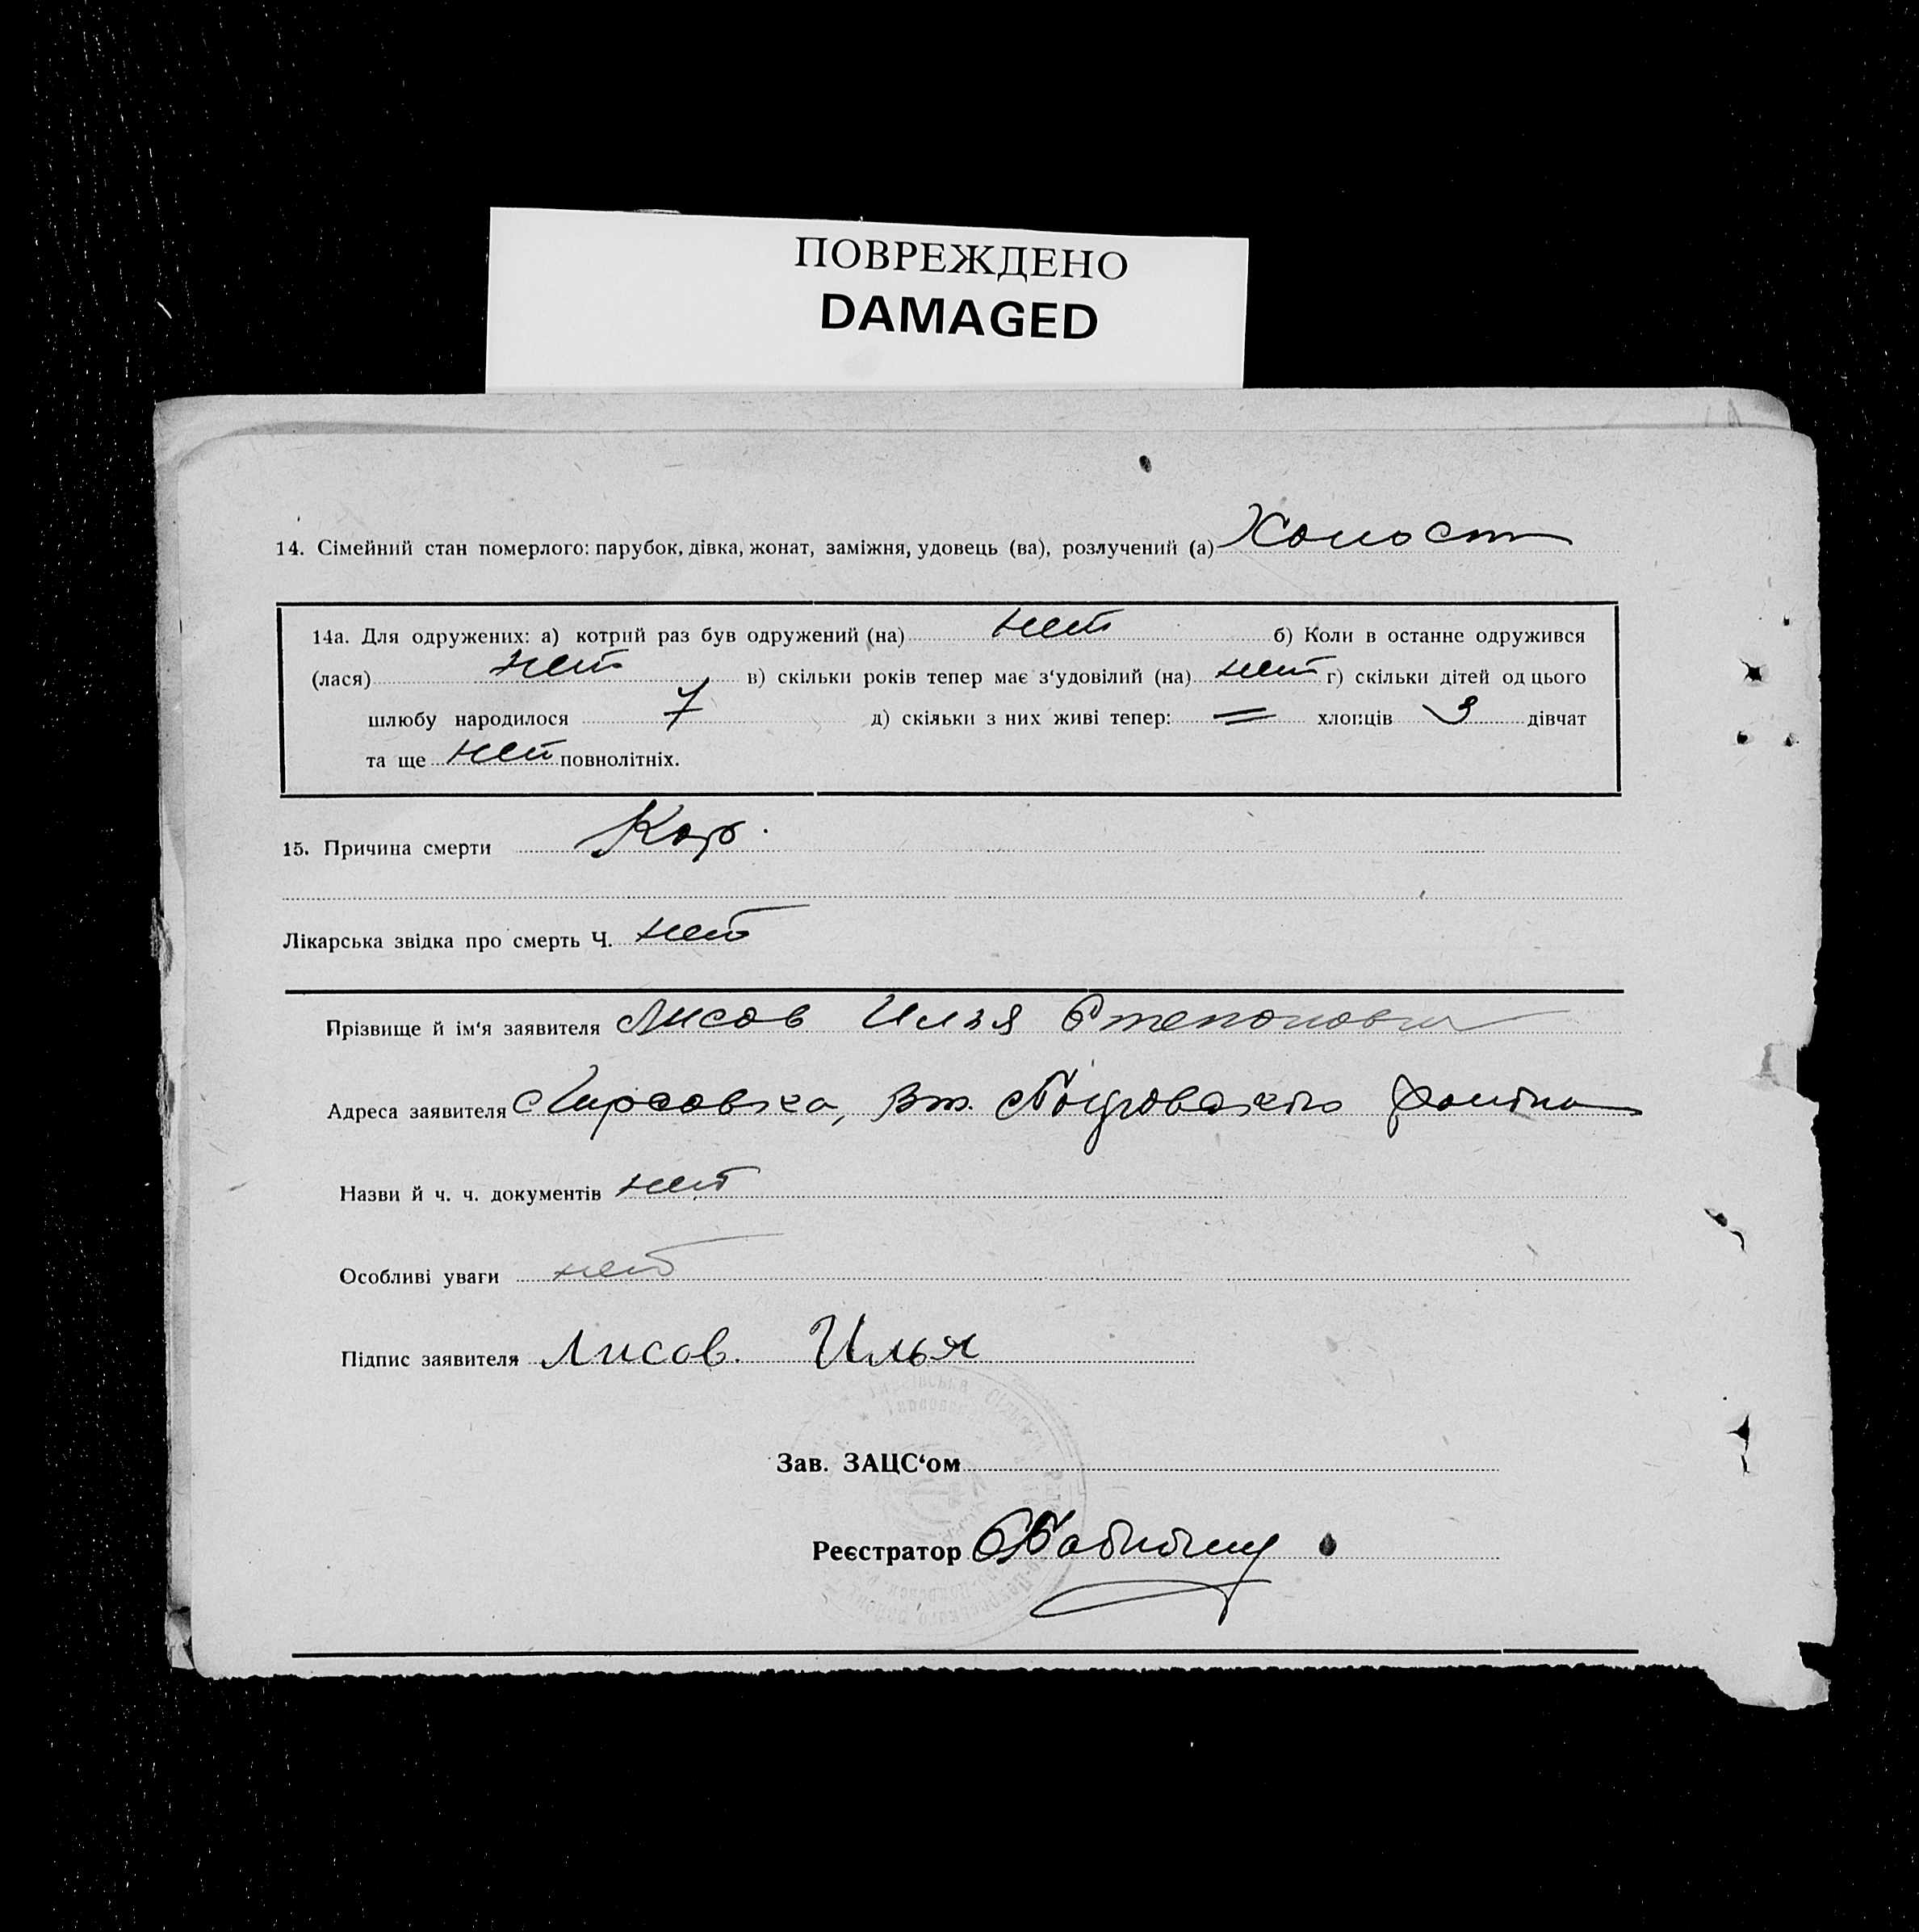 ПОВРЕЖДЕНО
DAMAGED
14. Сімейний стан померлого: парубок, дівка, жонат, заміжня, удовець (ва), розлучений (а) Холост
14а. Для одружених: а) котрий раз був одружений (на) нет б) Коли в останнє одружився
(лася) нет в) скільки років тепер має з'удовілий (на) нет г) скільки дітей од цього
шлюбу народилося 7 д) скільки з них живі тепер: = хлопців 3 дівчат
та ще нет повнолітніх.
15. Причина смерти Кор.
Лікарська звідка про смерть Ч. нет
Прізвище й ім'я заявителя Лисов Илья Степонович
Адреса заявителя
Назви й ч. ч. документів нет
Особливі уваги нет
Підпис заявителя Лисов. Илья
Зав. ЗАЦС'ом
Реєстратор